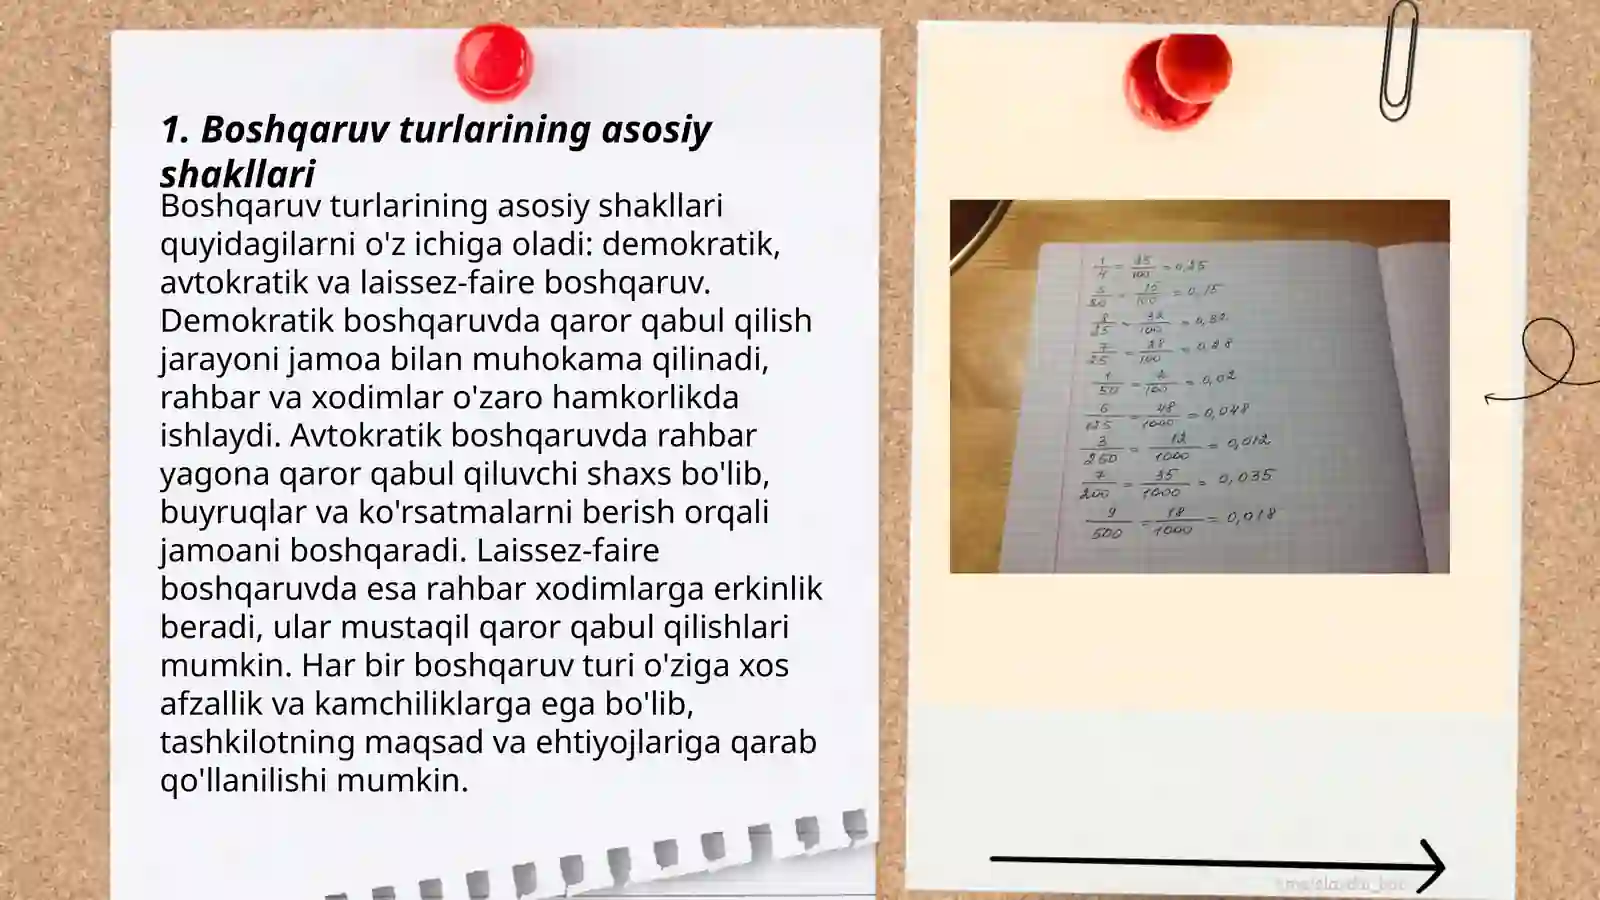 1. Boshqaruv turlarining asosiy
shakllari
Boshqaruv turlarining asosiy shakllari
quyidagilarni o'z ichiga oladi: demokratik,
avtokratik va laissez-faire boshqaruv.
Demokratik boshqaruvda qaror qabul qilish
jarayoni jamoa bilan muhokama qilinadi,
rahbar va xodimlar o'zaro hamkorlikda
ishlaydi. Avtokratik boshqaruvda rahbar
yagona qaror qabul qiluvchi shaxs bo'lib,
buyruqlar va ko'rsatmalarni berish orqali
jamoani boshqaradi. Laissez-faire
boshqaruvda esa rahbar xodimlarga erkinlik
beradi, ular mustaqil qaror qabul qilishlari
mumkin. Har bir boshqaruv turi o'ziga xos
afzallik va kamchiliklarga ega bo'lib,
tashkilotning maqsad va ehtiyojlariga qarab
qo'llanilishi mumkin.
1/4 = 25/100 = 0,25
15/100 = 0,15
8/25 = 32/100 = 0,32
7/25 = 28/100 = 0,28
1/50 = 2/100 = 0,02
6/125 = 48/1000 = 0,048
3/250 = 12/1000 = 0,012
7/200 = 35/1000 = 0,035
9/500 = 18/1000 = 0,018